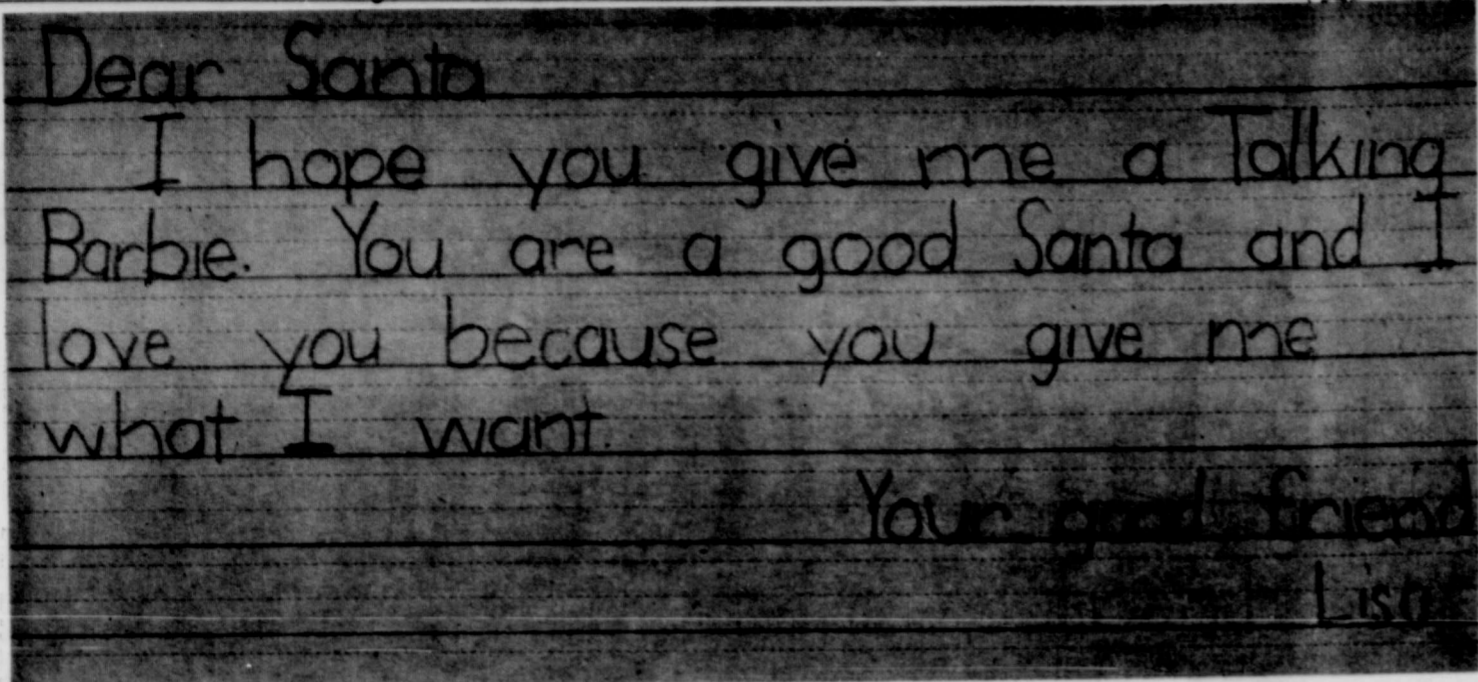 Dear Santa
I hope you give me a Talking
Barbie. You are a good Santa and I
love you because you give me
what I want.
Your good friend
Lisa